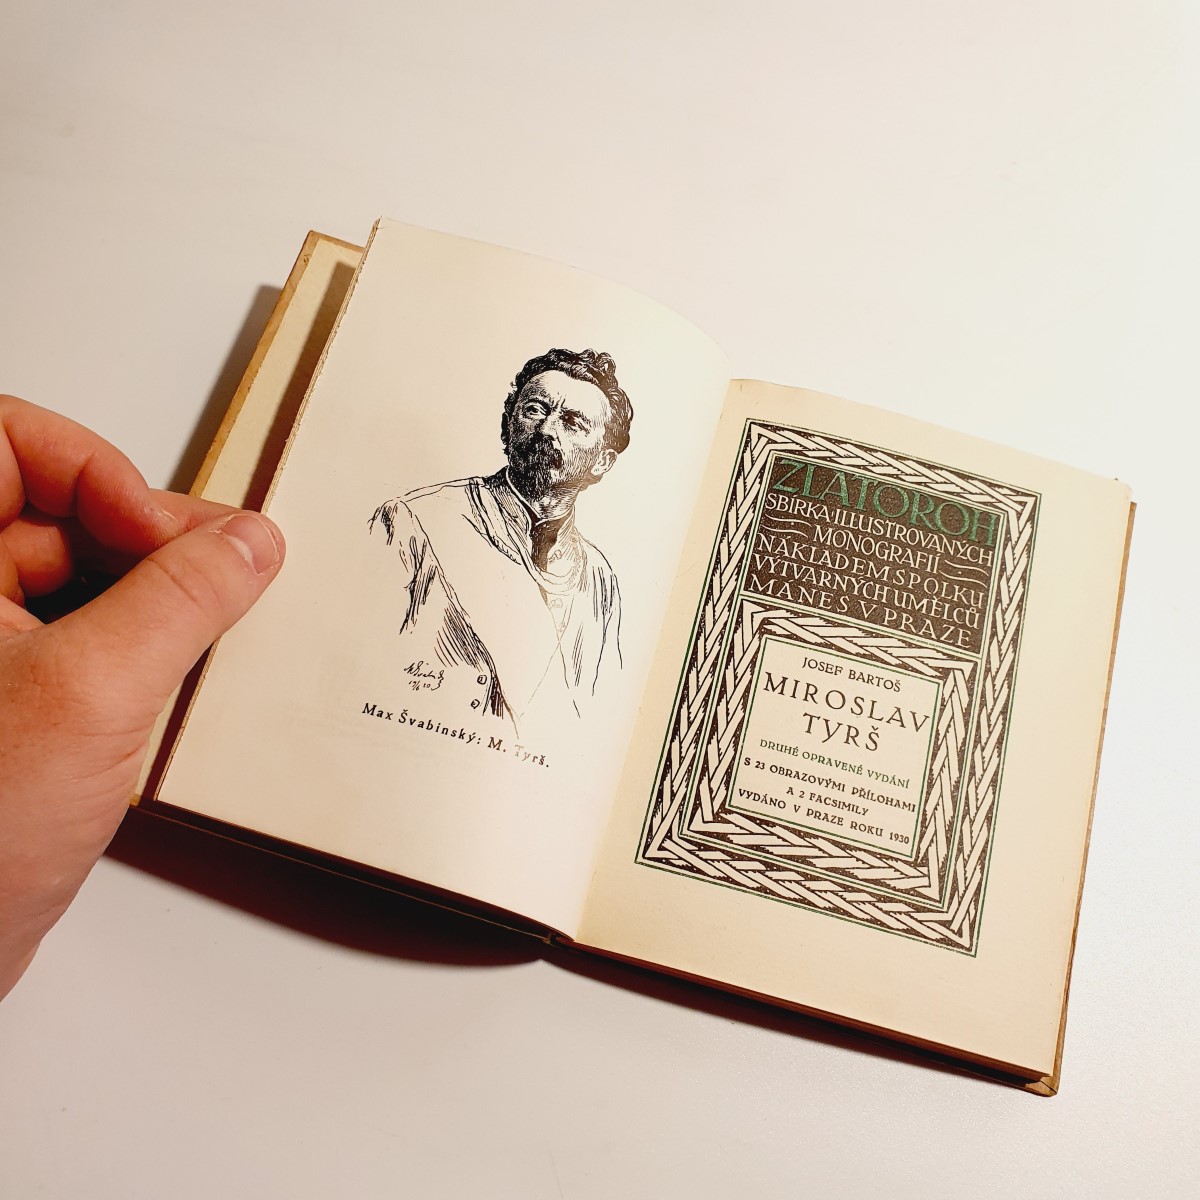 Max Švabinský: M. Tyrš.
ZLATOROH
SBÍRKA·ILLUSTROVANÝCH
MONOGRAFII
NÁKLADEM SPOLKU
VÝTVARNÝCH UMĚLCŮ
MÁNES V PRAZE
JOSEF BARTOŠ
MIROSLAV
TYRŠ
DRUHÉ OPRAVENÉ VYDÁNÍ
S 23 OBRAZOVÝMI PŘÍLOHAMI
A 2 FACSIMILY
VYDÁNO V PRAZE ROKU 1930